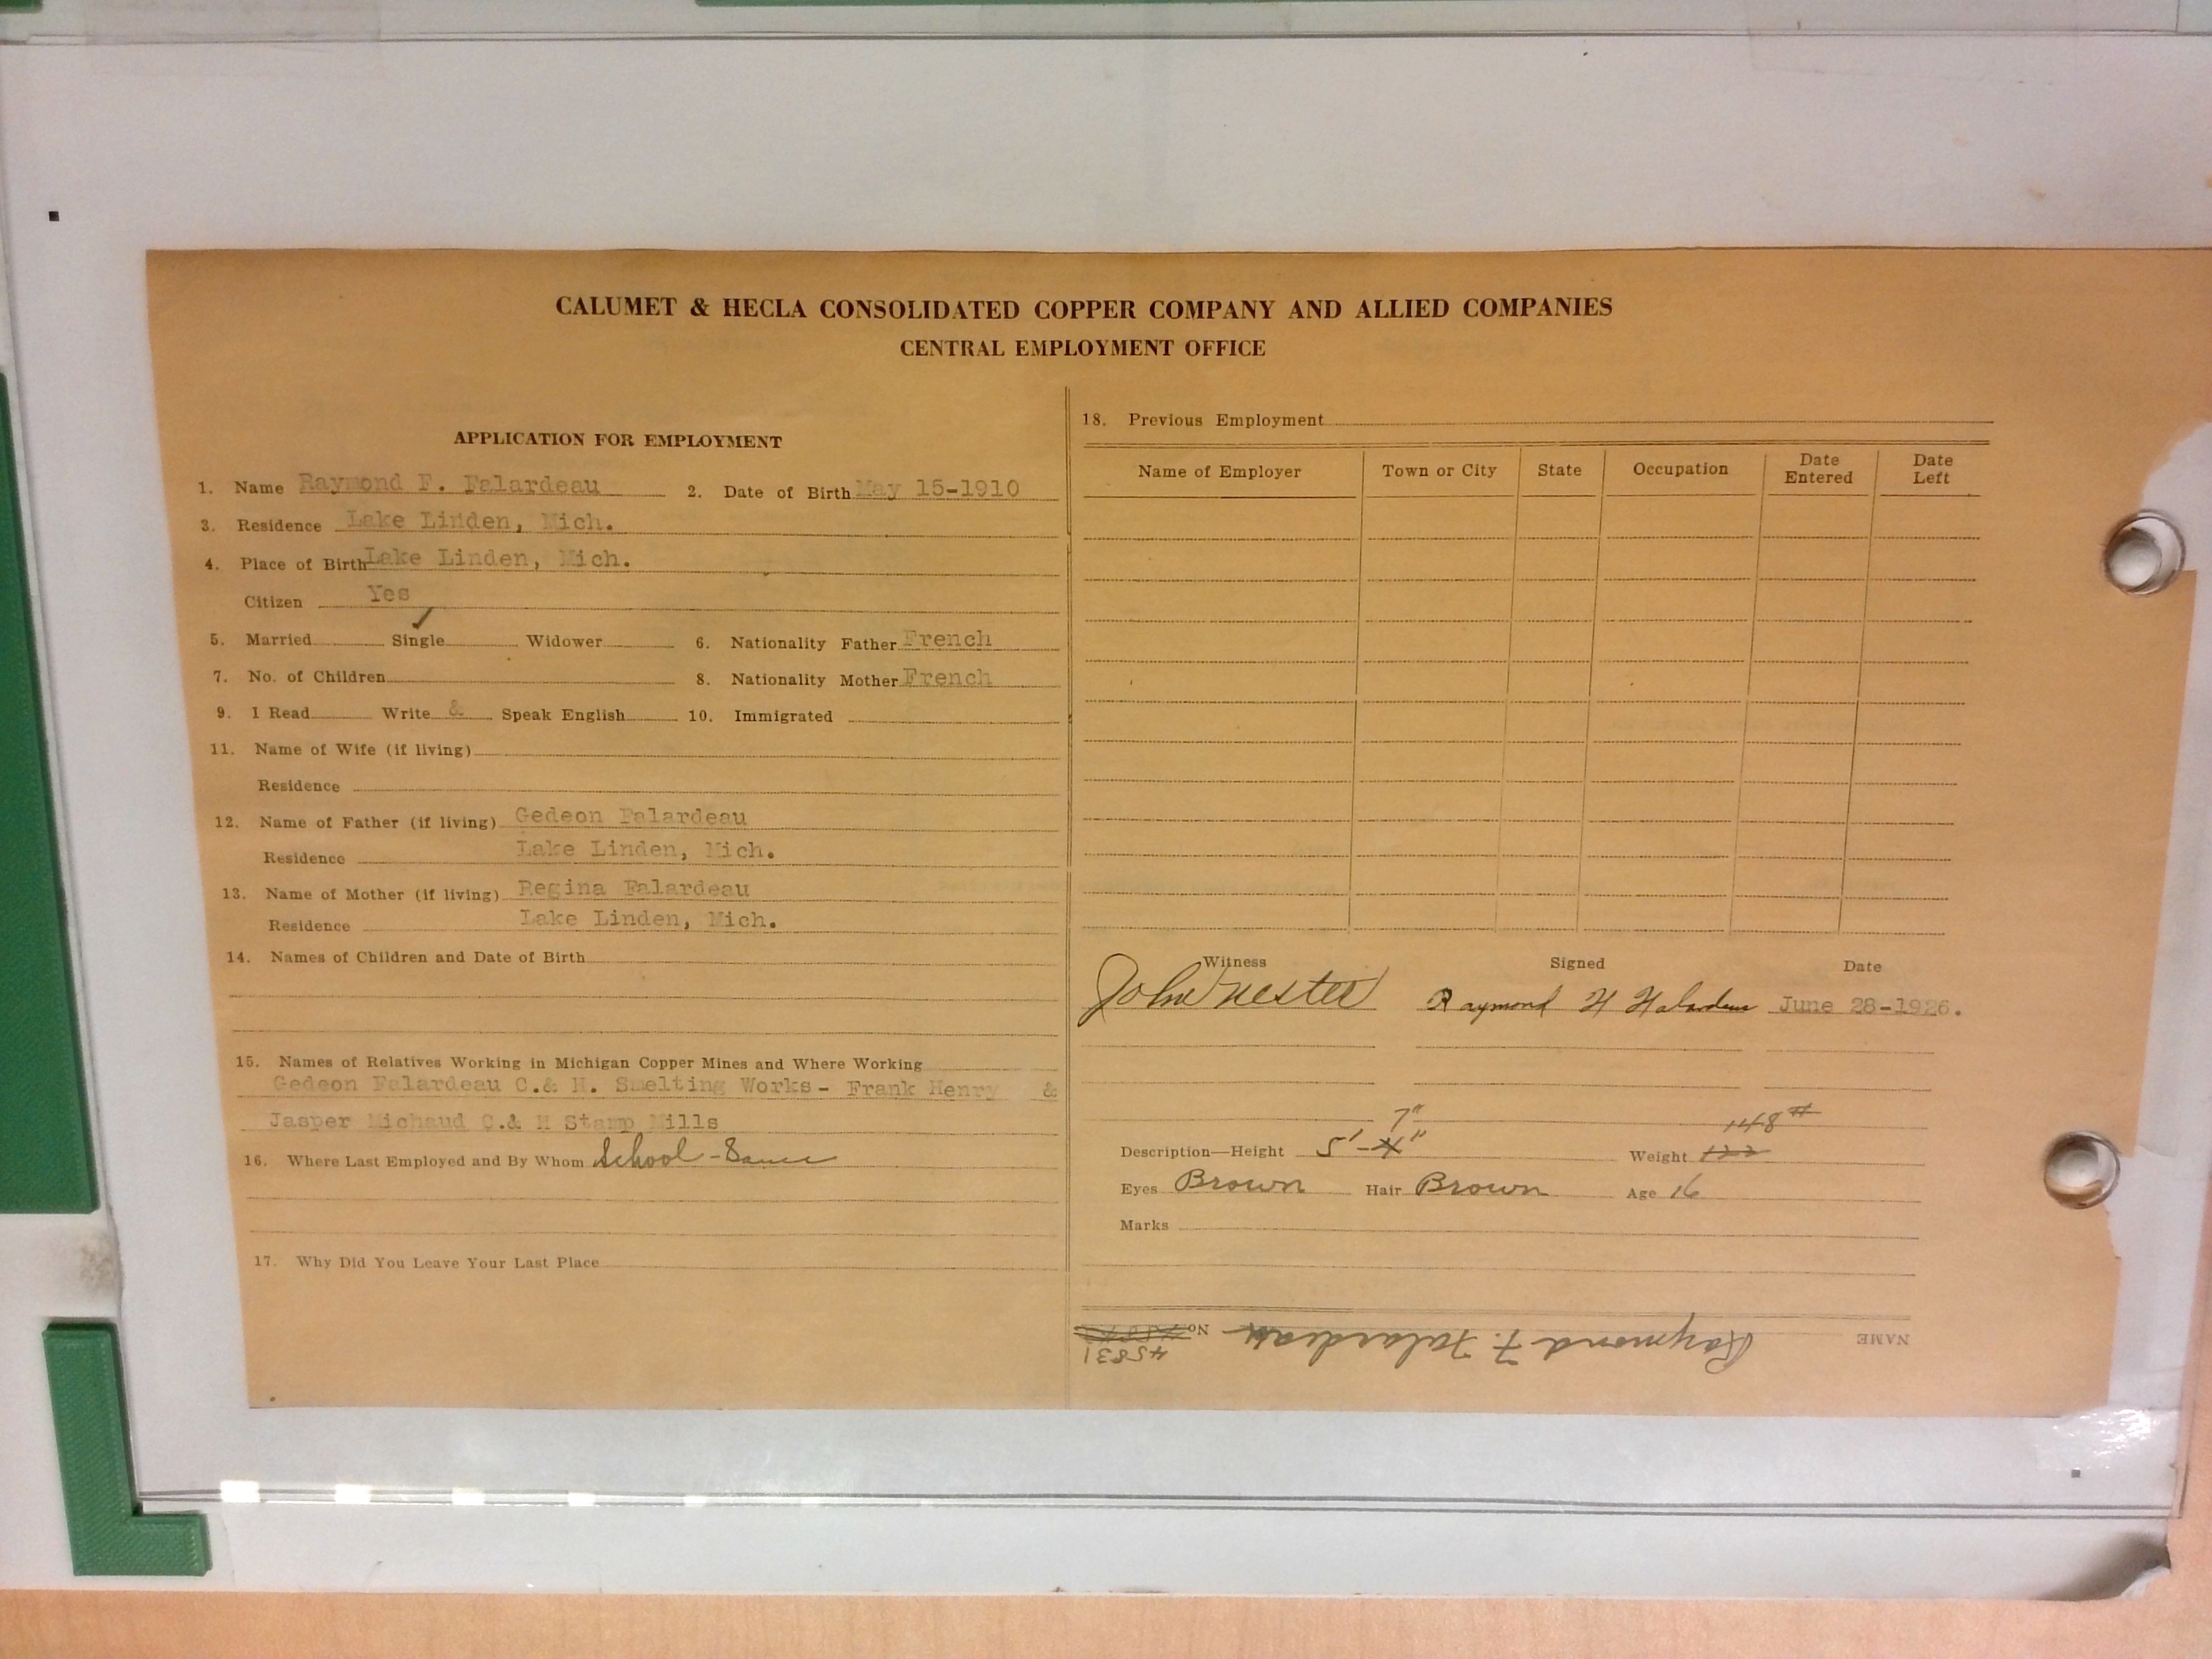 CALUMET & HECLA CONSOLIDATED COPPER COMPANY AND ALLIED COMPANIES
CENTRAL EMPLOYMENT OFFICE
APPLICATION FOR EMPLOYMENT
1. Name Raymond F. Falardeau 2. Date of Birth May 15-1910
3. Residence Lake Linden, Mich.
4. Place of Birth Lake Linden, Mich.
Citizen Yes
5. Married Single ✓ Widower 6. Nationality Father French
7. No. of Children 8. Nationality Mother French
9. I Read Write & Speak English 10. Immigrated
11. Name of Wife (if living)
Residence
12. Name of Father (if living) Gedeon Falardeau
Residence Lake Linden, Mich.
13. Name of Mother (if living) Regina Falardeau
Residence Lake Linden, Mich.
14. Names of Children and Date of Birth
15. Names of Relatives Working in Michigan Copper Mines and Where Working
Gedeon Falardeau C.& H. Smelting Works - Frank Henry &
Jasper Michaud C.& H Stamp Mills
16. Where Last Employed and By Whom School -
17. Why Did You Leave Your Last Place
18. Previous Employment
Name of Employer Town or City State Occupation Date Entered Date Left
Witness Signed Date
John Nester Raymond F Falardeau June 28-1926.
7" 148#
Description—Height 5'-4" Weight 122
Eyes Brown Hair Brown Age 16
Marks
NAME Raymond F. Falardeau No
45831